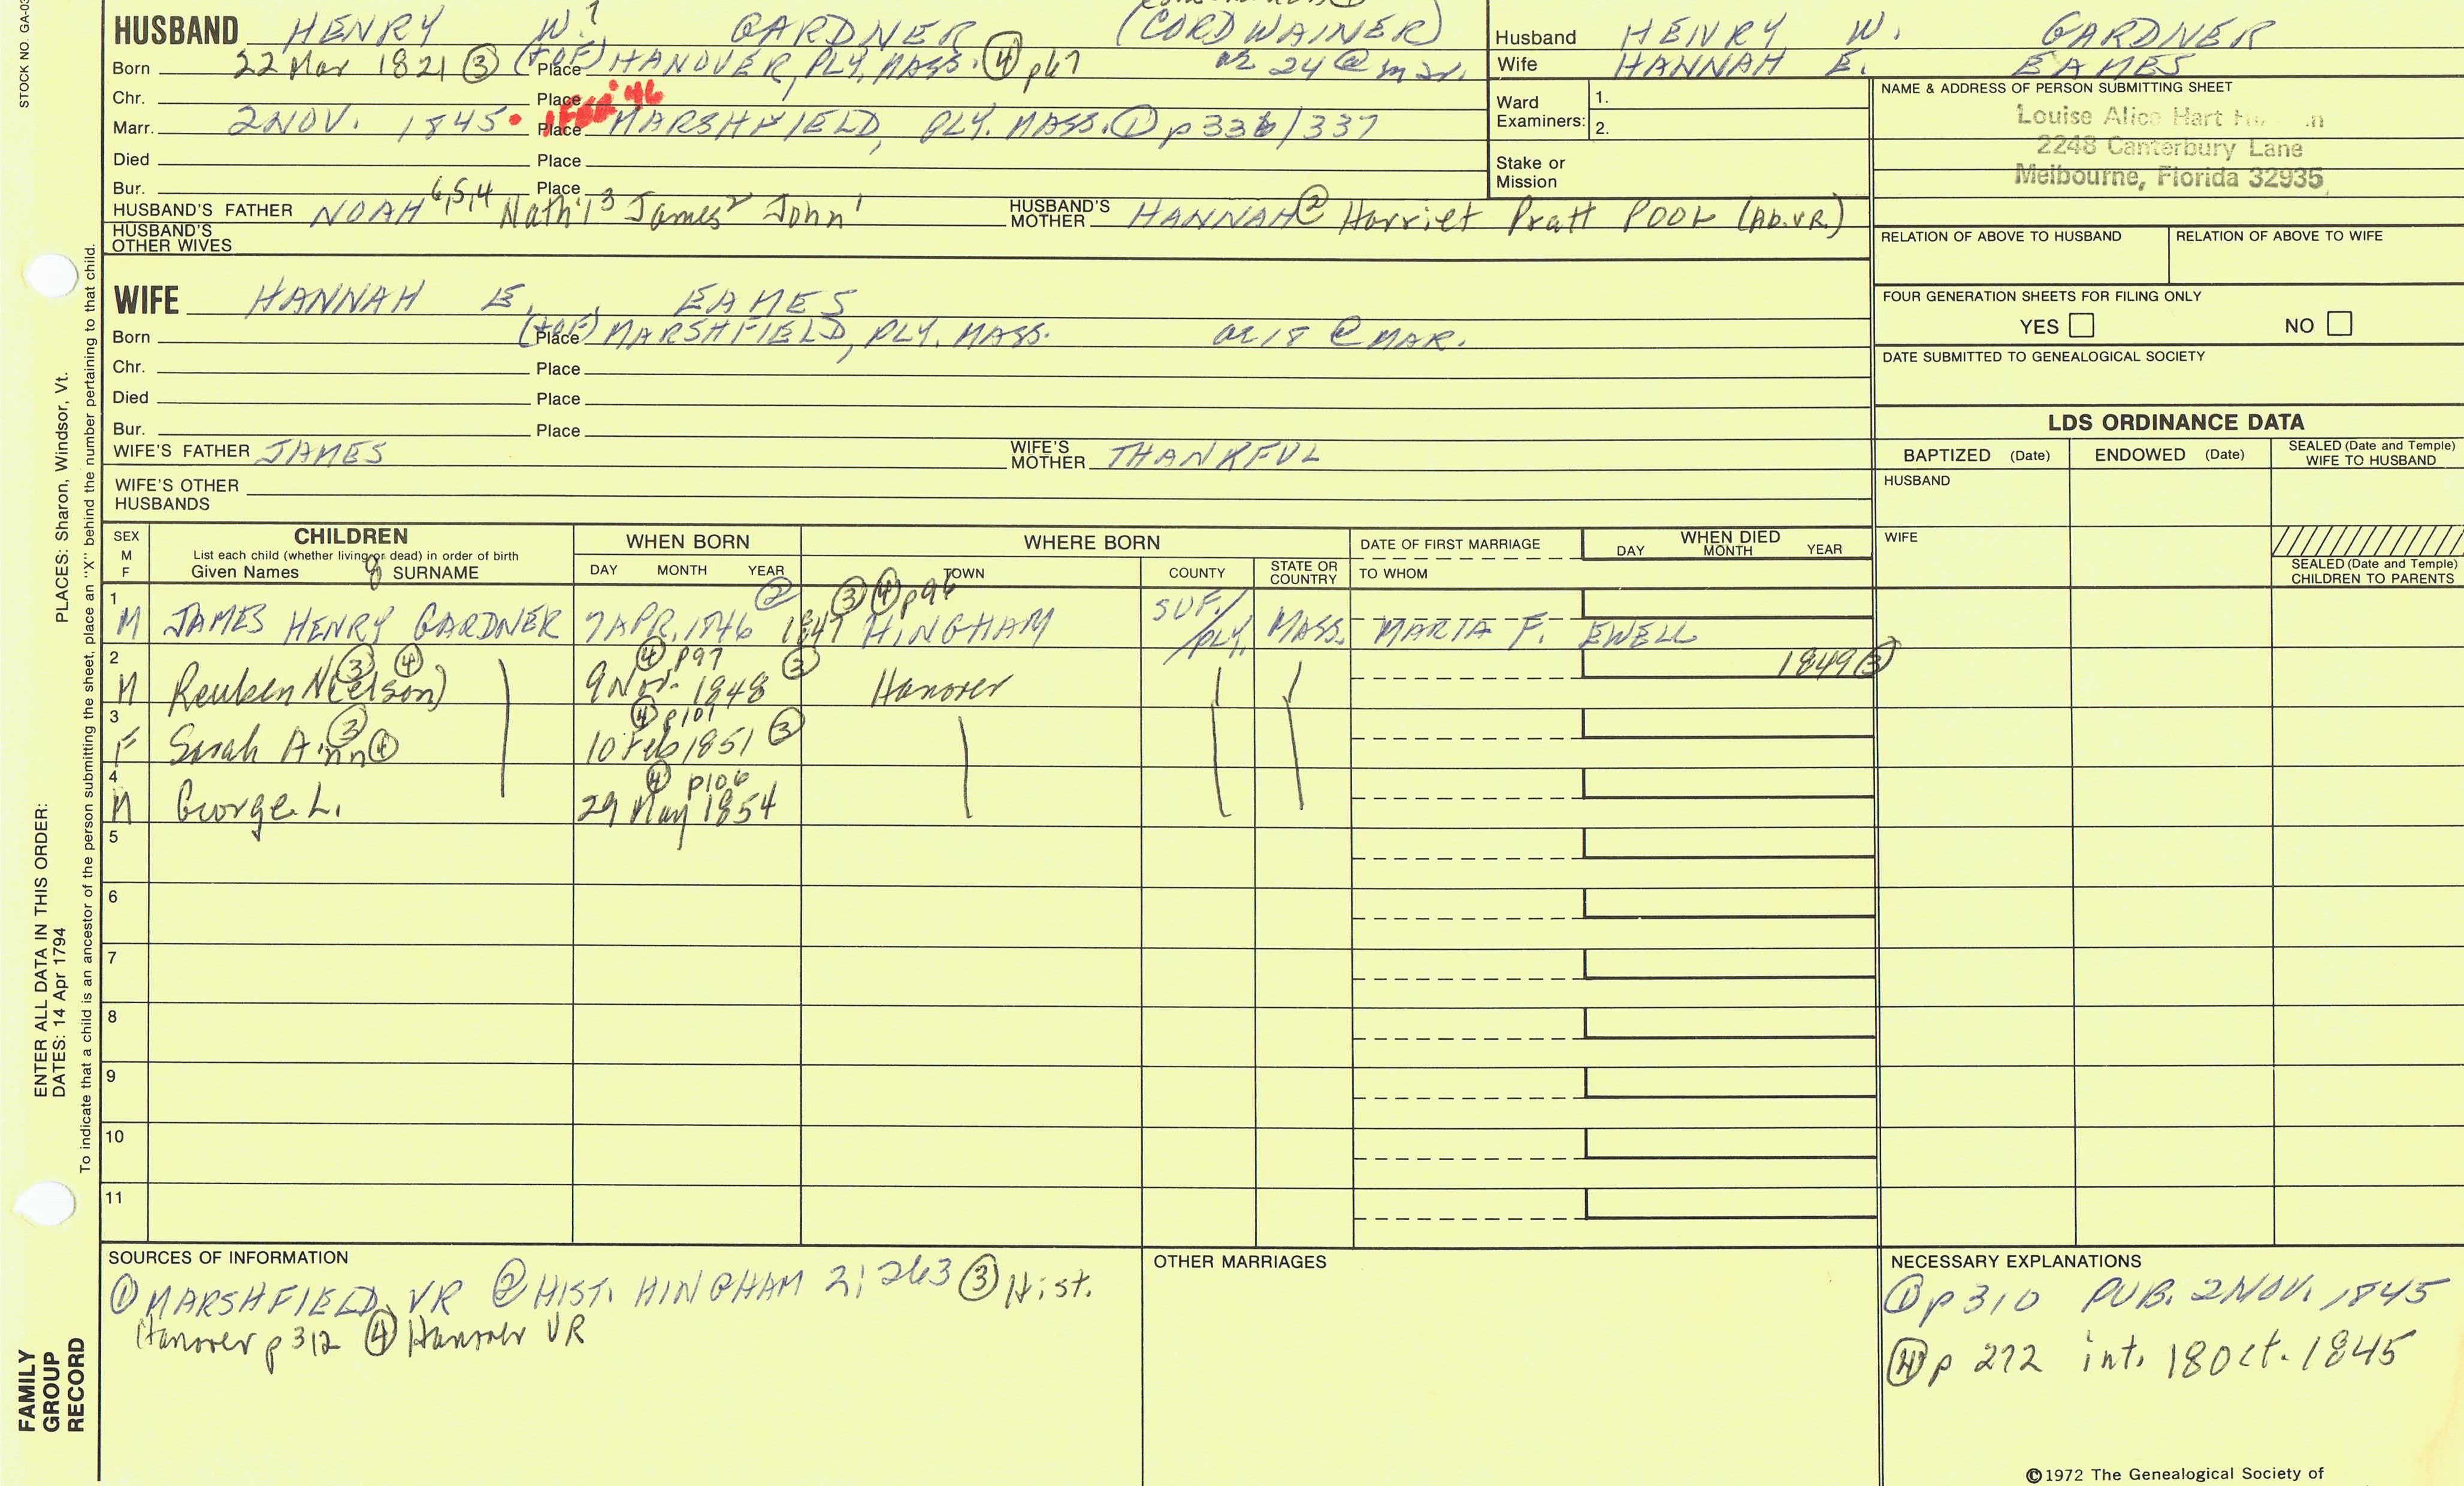 STOCK NO. GA-03
HUSBAND HENRY W.? GARDNER (CORDWAINER)
Born 22 Mar 1821 ③ (+OF) Place HANOVER, PLY. MASS. ④ p67 24 @ mar.
Chr. Place
Marr. 2 NOV. 1845. 1 FEB '46 Place MARSHFIELD, PLY. MASS. ① p 336/337
Died Place
Bur. Place
HUSBAND'S FATHER NOAH 6,5,4 Nath'l 3 James 2 John 1 HUSBAND'S MOTHER HANNAH ② Harriet Pratt POOL (Ab.VR.)
HUSBAND'S OTHER WIVES
WIFE HANNAH E. EAMES
Born (+OF) Place MARSHFIELD, PLY. MASS. 18 @ MAR.
Chr. Place
Died Place
Bur. Place
WIFE'S FATHER JAMES WIFE'S MOTHER THANKFUL
WIFE'S OTHER HUSBANDS
Husband HENRY W. GARDNER
Wife HANNAH E. EAMES
Ward Examiners: 1.
2.
Stake or Mission
NAME & ADDRESS OF PERSON SUBMITTING SHEET
Louise Alice Hart
2248 Canterbury Lane
Melbourne, Florida 32935
RELATION OF ABOVE TO HUSBAND RELATION OF ABOVE TO WIFE
FOUR GENERATION SHEETS FOR FILING ONLY
YES NO
DATE SUBMITTED TO GENEALOGICAL SOCIETY
LDS ORDINANCE DATA
BAPTIZED (Date) ENDOWED (Date) SEALED (Date and Temple) WIFE TO HUSBAND
HUSBAND
WIFE
SEALED (Date and Temple) CHILDREN TO PARENTS
SEX M F CHILDREN List each child (whether living or dead) in order of birth Given Names SURNAME
WHEN BORN DAY MONTH YEAR
WHERE BORN TOWN COUNTY STATE OR COUNTRY
DATE OF FIRST MARRIAGE TO WHOM
WHEN DIED DAY MONTH YEAR
1 M JAMES HENRY GARDNER 7 APR. 1846 ② 1847 ③ ④ p96 HINGHAM SUF./PLY. MASS. MARIA F. EWELL
2 M Reuben N(elson) ③ ④ 9 Nov. 1848 ④ p97 ③ Hanover 1849 ③
3 F Sarah Ann ③ ④ 10 Feb 1851 ④ p101 ③
4 M George L. 29 May 1854 ④ p106
5
6
7
8
9
10
11
SOURCES OF INFORMATION
① MARSHFIELD VR ② HIST. HINGHAM 2; 263 ③ Hist.
Hanover p 312 ④ Hanover VR
OTHER MARRIAGES
NECESSARY EXPLANATIONS
① p 310 PUB. 2 NOV. 1845
④ p 272 int. 18 Oct. 1845
©1972 The Genealogical Society of
PLACES: Sharon, Windsor, Vt.
To indicate that a child is an ancestor of the person submitting the sheet, place an "X" behind the number pertaining to that child.
ENTER ALL DATA IN THIS ORDER:
DATES: 14 Apr 1794
FAMILY
GROUP
RECORD